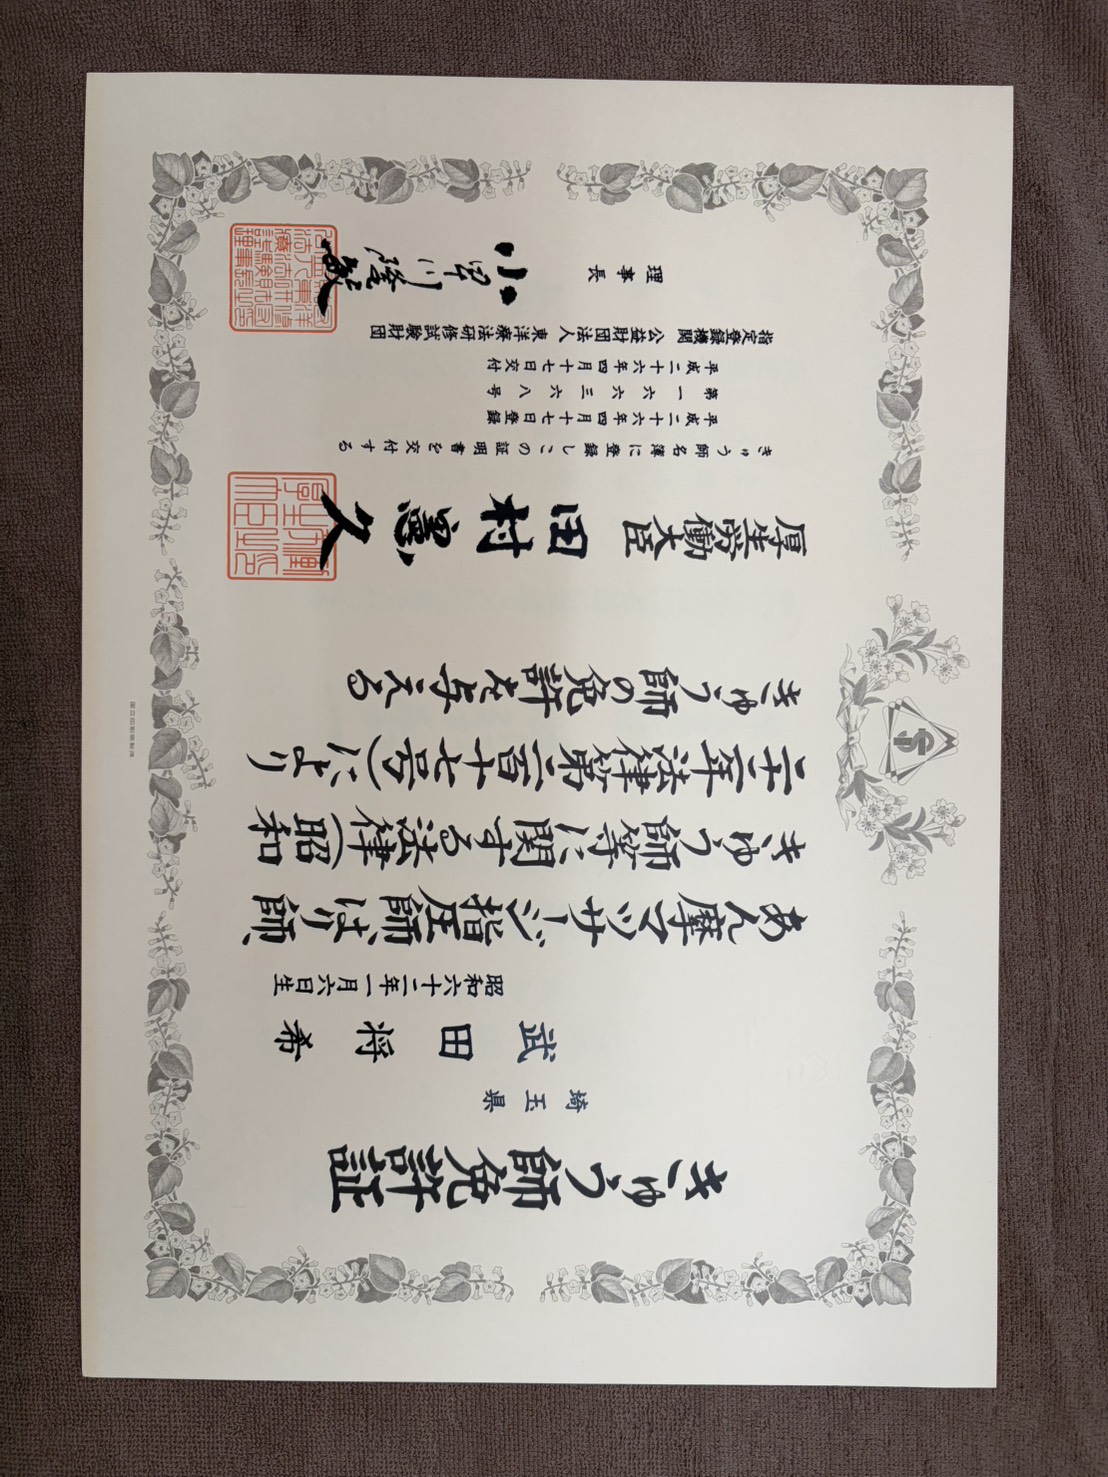 きゅう師免許証
埼玉県
武田将希
昭和六十二年一月六日生
あん摩マツサージ指圧師、はり師、
きゅう師等に関する法律(昭和
二十二年法律第二百十七号)により
きゅう師の免許を与える
厚生労働大臣 田村憲久
きゅう師名簿に登録しこの証明書を交付する
平成二十六年四月十七日登録
第一六六三六八号
平成二十六年四月十七日交付
指定登録機関 公益財団法人 東洋療法研修試験財団
理事長